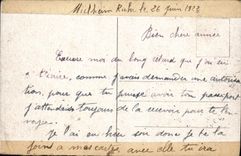 Mülheim Ruhr le 26 juin 1923
Bien chère aimée
Excuse moi du long retard que j'ai eu
t'écrire, comme j'avais demander une autorisa
tion pour que tu puisse avoir ton passeport
j'attendais toujours de la recevoir pour te l'en
voyer.
je l'ai eu hier soir donc je te la
joins a ma carte avec elle tu ira